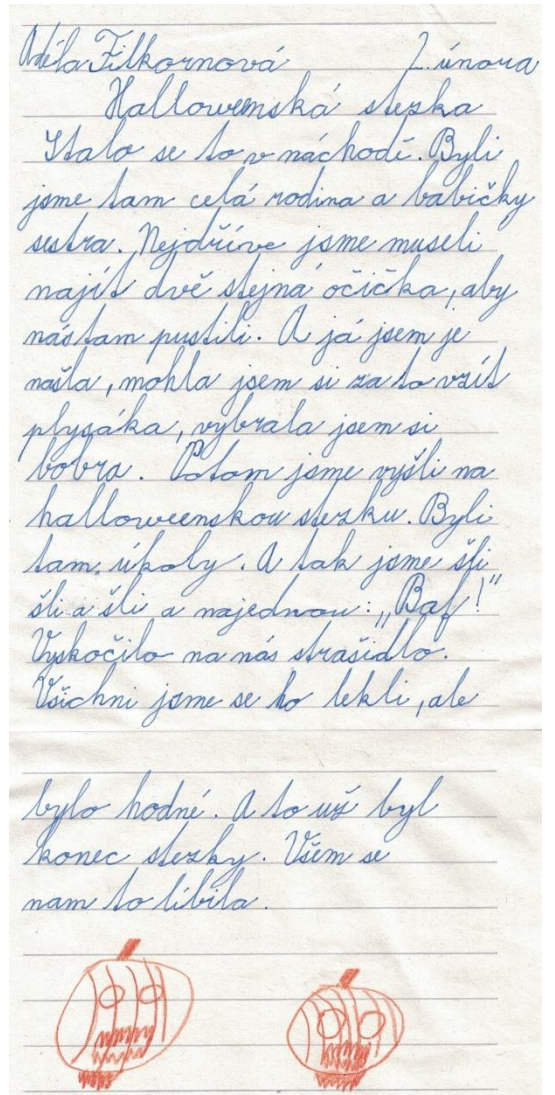 Adéla Filkornová 2. února
Hallowenská stezka
Stalo se to v náchodě. Byli
jsme tam celá rodina a babičky
sestra. Nejdříve jsme museli
najít dvě stejná očička, aby
nás tam pustili. A já jsem je
našla, mohla jsem si za to vzít
plysáka, vybrala jsem si
bobra. Potom jsme vyšli na
halloweenskou stezku. Byli
tam úkoly. A tak jsme šli
šli a šli a najednou: „Baf!"
Vyskočilo na nás strašidlo.
Všichni jsme se ho lekli, ale
bylo hodné. A to už byl
konec stezky. Všem se
nam to líbila.